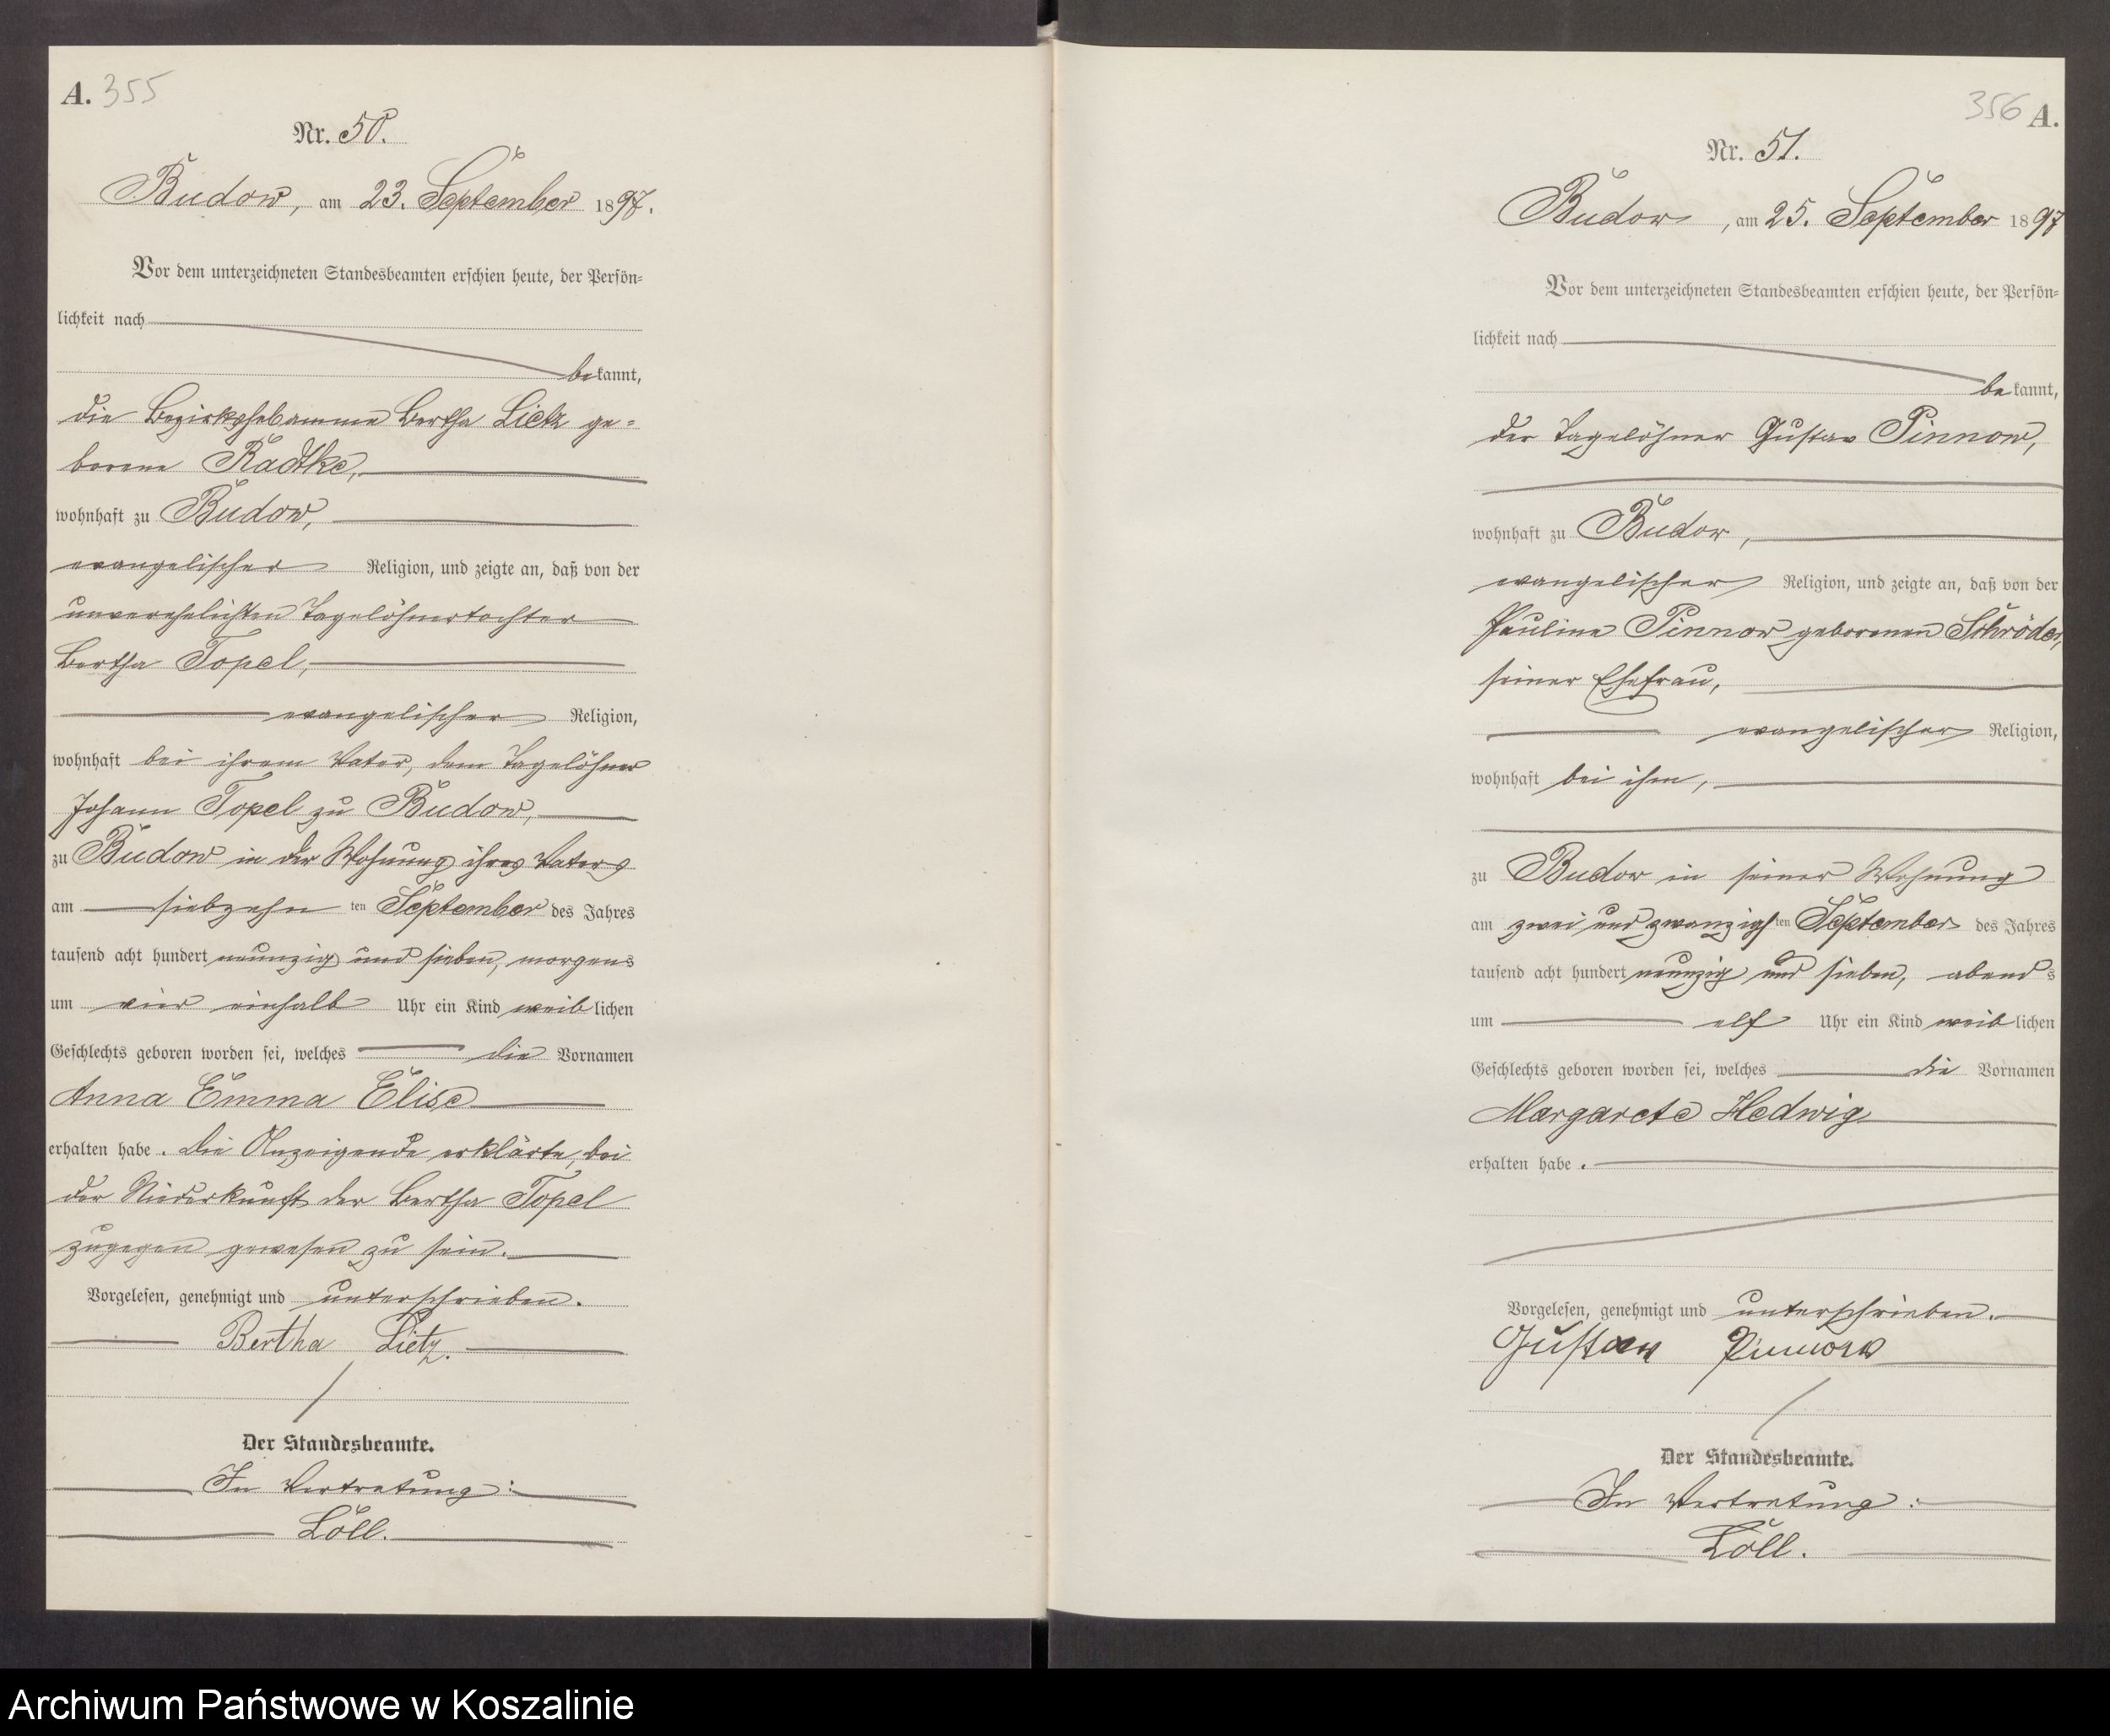 A. 355
Nr. 50.
Budow, am 23. September 1897.
Vor dem unterzeichneten Standesbeamten erschien heute, der Persön=
lichkeit nach
bekannt,
die Bezirkshebamme Bertha Lietz ge=
borene Radtke,
wohnhaft zu Budow,
evangelischer Religion, und zeigte an, daß von der
unverehelichten Tagelöhnertochter
Bertha Topel,
evangelischer Religion,
wohnhaft bei ihrem Vater, dem Tagelöhner
Johann Topel zu Budow,
zu Budow in der Wohnung ihres Vaters
am siebzehn ten September des Jahres
tausend acht hundert neunzig und sieben, morgens
um vier einhalb Uhr ein Kind weiblichen
Geschlechts geboren worden sei, welches die Vornamen
Anna Emma Elise
erhalten habe. Die Anzeigende erklärte, bei
der Niederkunft der Bertha Topel
zugegen gewesen zu sein.
Vorgelesen, genehmigt und unterschrieben.
Bertha Lietz.
Der Standesbeamte.
In Vertretung:
Löll.
356 A.
Nr. 51.
Budow, am 25. September 1897
Vor dem unterzeichneten Standesbeamten erschien heute, der Persön=
lichkeit nach
bekannt,
der Tagelöhner Gustav Pinnow,
wohnhaft zu Budow,
evangelischer Religion, und zeigte an, daß von der
Pauline Pinnow geborenen Schröder,
seiner Ehefrau,
evangelischer Religion,
wohnhaft bei ihm,
zu Budow in seiner Wohnung
am zwei und zwanzigsten September des Jahres
tausend acht hundert neunzig und sieben, abends
um elf Uhr ein Kind weiblichen
Geschlechts geboren worden sei, welches die Vornamen
Margarete Hedwig
erhalten habe.
Vorgelesen, genehmigt und unterschrieben.
Gustav Pinnow
Der Standesbeamte.
In Vertretung:
Löll.
Archiwum Państwowe w Koszalinie